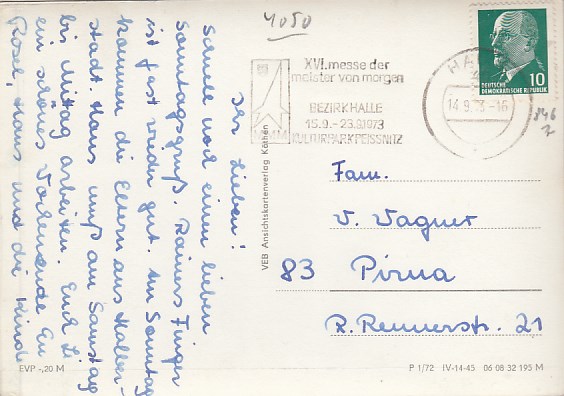 4050
XVI. messe der
meister von morgen
BEZIRK HALLE
15.9. - 23.9.1973
KULTURPARK PEISSNITZ
14.9.73-16
DEUTSCHE
DEMOKRATISCHE REPUBLIK
10
846
Ihr Lieben!
Schnell noch einen lieben
Sonntagsgruß. Rainers Finger
ist fast wieder gut. Am Sonntag
kommen die Eltern aus Halber-
stadt. Hans muß am Samstag
bis Mittag arbeiten. Euch
ein schönes Wochenende Eure
Rosel, Hans und die Kinder
VEB Ansichtskartenverlag Köthen
Fam.
V. Wagner
83 Pirna
R. Rennerstr. 21
EVP -,20 M
P 1/72 IV-14-45 06 08 32 195 M